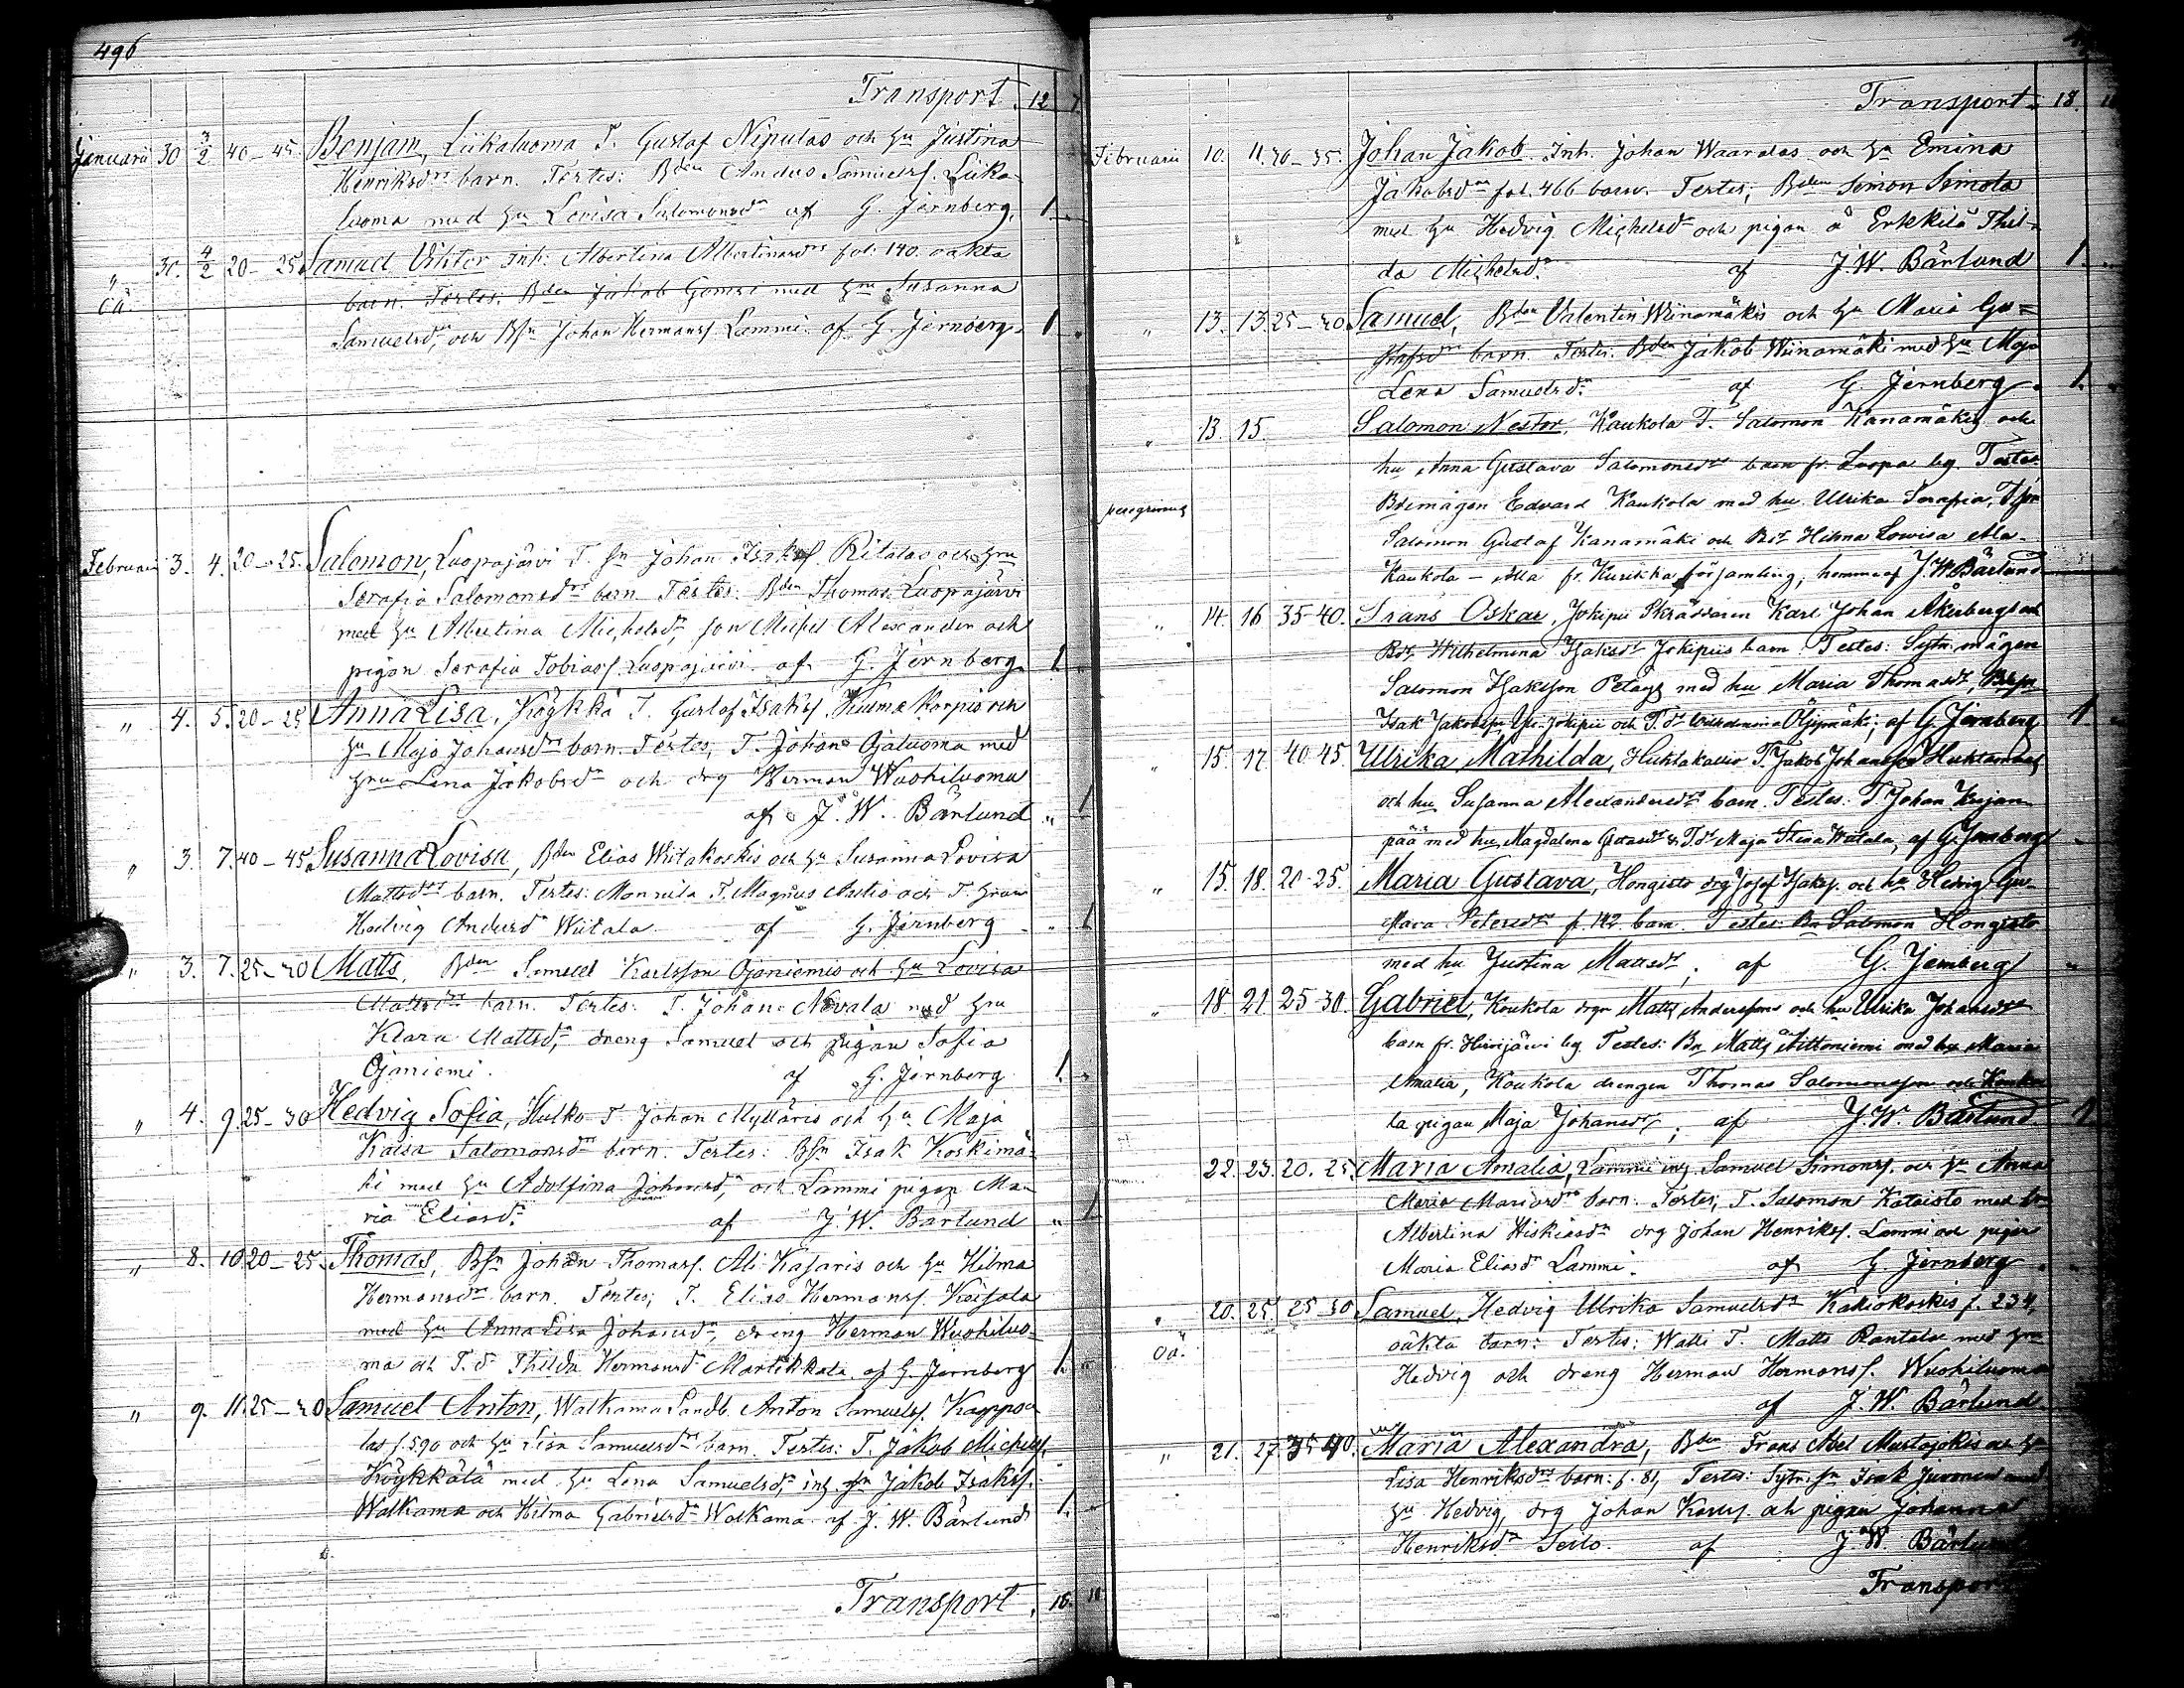 496
Transport. 12 7
Januarii 30 3/2 40-45 Benjam, Liikaluoma T. Gustaf Nipulas och hu Justina
Henriksdrs barn. Testes: Bden Andus Samuelss. Liika-
luoma med hu Lovisa Salomonsdr af G. Jernberg. 1
" 30. 4/2 20-25 Samuel Viktor inh: Albertina Albertinasdrs fol: 140. oäkta
oä. barn. Testes: Bden Jakob med hu Susanna
Samuelsdr, och Bsn Johan Hermanss. Lammi. af G. Jernberg. 1
Februarii 3. 4. 20-25. Salomon, Luopajärvi T. sn Johan Isakss. Ritalas och hu
Serafia Salomonsdrs barn Testes: Bden Thomas Luopajärvi
med hu Albertina Michelsdr, son Michel Alexander och
pigan Serafia Tobiass. Luopajärvi af G. Jernberg. 1
" 4. 5. 20-25 Anna Lisa, Köykkä T. Gustaf Isakss. Kuusmakorpis och
hu Maja Johansdrs barn. Testes; T. Johan Ojaluoma med
hu Lena Jakobsdr och drg Herman Wuohiluoma
af J. W. Bärlund " 1
" 3. 7. 40-45 Susanna Lovisa, Bden Elias Wiitakoskis och hu Susanna Lovisa
Mattsdrs barn. Testes: Monnila T. Magnus och T. hru
Hedvig Andersdr Wiitala af G. Jernberg " 1
" 3. 7. 25-30 Matts, Bden Samuel Karlsson Ojaniemis och hu Lovisa
Mattsdrs barn. Testes: T. Johan Nevala med hru
Klara Mattsdr, dreng Samuel och pigan Sofia
Ojaniemi. af G. Jernberg 1. "
" 4. 9. 25-30 Hedvig Sofia, Hulko T. Johan Mylläris och hu Maja
Kaisa Salomonsdrs barn. Testes: Bsn Isak Koskimä-
ki med hu Adolfina Johansdr, och Lammi pigan Ma-
ria Eliasdr. af J. W. Bärlund " 1
" 8. 10. 20-25. Thomas, Bsn Johan Thomass. Ali Kasaris och hu Hilma
Hermansdrs barn. Testes; T. Elias Hermanss. Koisala
med hu Anna Lisa Johansdr, dreng Herman Wuohiluo-
ma och T. dr Thilda Hermansdr Martikkala af G. Jernberg 1. "
" 9. 11. 25-30 Samuel Anton, Walkama Landb. Anton Samuelss. Kaappo-
las f. 590 och hu Lisa Samuelsdrs barn. Testes: T. Jakob Michelss.
Köykkälä med hu Lena Samuelsdr, ing. Jakob Isakss.
Walkama och Hilma Gabrielsdr Walkama. af J. W. Bärlund 1. "
Transport.
Transport. 18.
Februarii 10. 11. 30-35. Johan Jakob Inh. Johan Waaralas och hu Emina
Jakobsdrs fol. 466 barn. Testes; Bden Simon Simola
med hu Hedvig Michelsdr och pigan å Erkkilä Thil-
da Michelsdr. af J. W. Bärlund 1.
" 13. 13. 25-30 Samuel, Bden Valentin Wiinamäkis och hu Maria Gu=
stafsdrs barn. Testes: Bden Jakob Wiinamäki med hu Maja
Lena Samuelsdr af G. Jernberg. 1.
" 13. 15. Salomon Nestor, Kaukola T. Salomon Kanamäkis och
hu Anna Gustava Salomonsdrs barn fr. Luopa by. Testes
peregrinus Bdemågen Edvard Kaukola med hu Ulrika Serafia, Tsn
Salomon Gustaf Kanamäki och Bdr Hilma Lowisa Ala-
Kaukola - alla fr. Kurikka församling, hemma af J. W. Bärlund
" 14. 16 35-40. Frans Oskar, Jokipii Skräddaren Karl Johan Åkerbergs och
Bdr Wilhelmina Isaksdr Jokipiis barn. Testes: Sytn. mågen
Salomon Isaksson Petays med hu Maria Thomasdr,
Isak Jakobsson Jokipii och T. dr Wilhelmina Öljymäki; af G. Jernberg 1
" 15. 17. 40-45. Ulrika Mathilda, Huhtakallio T. Jakob Johansson
och hu Susanna Alexandersdrs barn. Testes: T. Johan Kujan-
pää med hu Magdalena & T. dr Maja Stina Wiitala, af G. Jernberg
" 15. 18. 20-25. Maria Gustava, Hongisto drg Josef Isakss. och hu Hedvig Gu-
stava Petersdrs f. 142 barn. Testes: Bn Salomon Hongisto
med hu Justina Mattsdr; af G. Jernberg "
" 18. 21. 25-30. Gabriel, Koukola drgn Matts Anderssons och hu Ulrika Johansdrs
barn fr. Hirvijärvi by. Testes: Bn Matts Aittoniemi med hu Maria
Amalia, Koukola drengen Thomas Salomonsson och Kouko-
la pigan Maja Johansdr; af J. W. Bärlund. 1
22. 23. 20. 25. Maria Amalia, Lammi ing Samuel Simonss. och hu Anna
Maria Mariasdrs barn. Testes; T. Salomon Kataisto med hu
Albertina Hiskiasdr drg Johan Henrikss. Lammi och pigan
Maria Eliasdr Lammi. af G. Jernberg
" 20. 25. 25-30 Samuel, Hedvig Ulrika Samuelsdrs Kakiokoskis f. 234,
oä. oäkta barn: Testes: Walli T. Matts Rantala med hru
Hedvig och dreng Herman Hermanss. Wuohiluoma
af J. W. Bärlund
" 21. 27. 35-40. Maria Alexandra, Bden Frans Abel Mustajokis och hu
Lisa Henriksdrs barn: f. 81, Testes: Sytn. sn Isak Juvonen med
hu Hedvig, drg Johan Karlss. och pigan Johanna
Henriksdr Seilo. af J. W. Bärlund
Transport